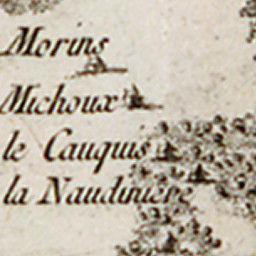 Morins
Michoux
le Cauquis
la Naudiniere